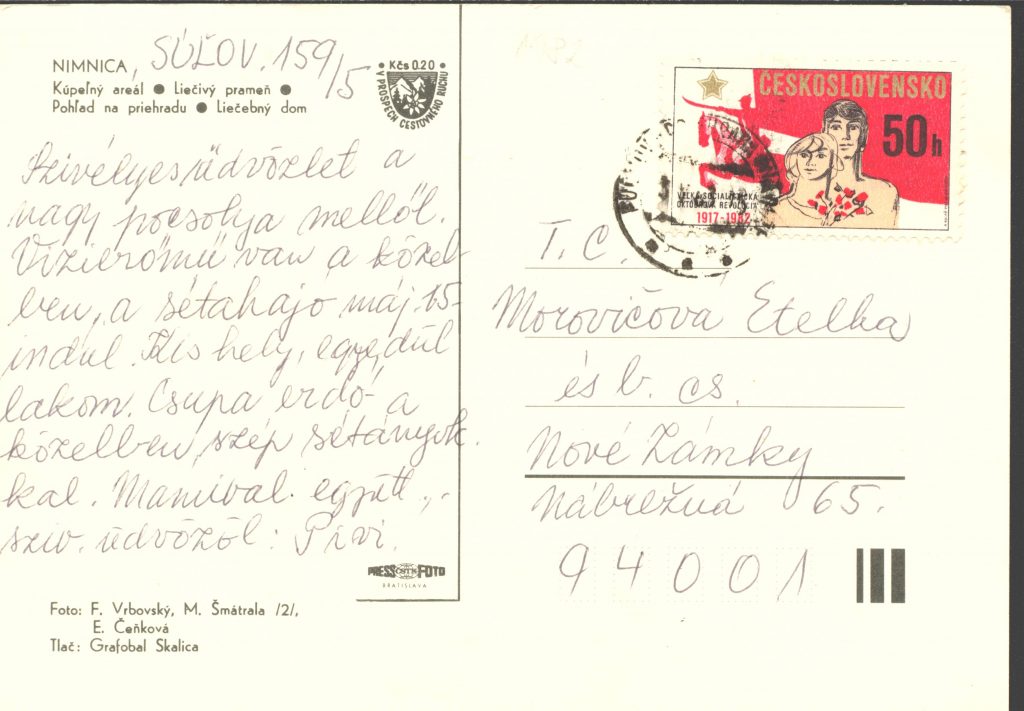 NIMNICA, SÚĽOV. 159/5
Kúpeľný areál ● Liečivý prameň ●
Pohľad na priehradu ● Liečebný dom
Kčs 0.20
V PROSPECH CESTOVNÉHO RUCHU
Szivélyes üdvözlet a
nagy pocsolya mellől.
Vizierőmü van a közel-
ben, a sétahajó máj. 15-
indul. Kis hely, egyedül
lakom. Csupa erdő a
közelben, szép sétányok-
kal. Mamival együtt
sziv. üdvözöl: Pirvi.
PRESS ČSTK FOTO
BRATISLAVA
Foto: F. Vrbovský, M. Šmátrala /2/,
E. Čeňková
Tlač: Grafobal Skalica
1982
ČESKOSLOVENSKO
50h
VEĽKÁ SOCIALISTICKÁ
OKTÓBROVÁ REVOLÚCIA
1917-1982
T. C.
Morovičova Etelka
és b. cs.
Nové Zámky
Nábrežná 65.
94001